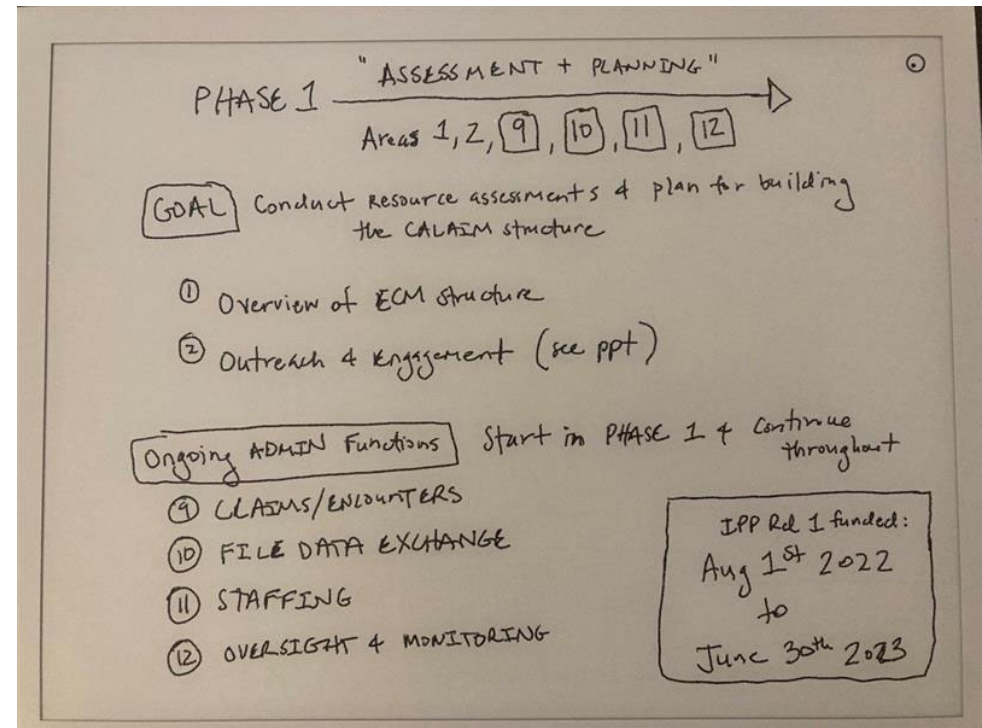 "ASSESSMENT + PLANNING"
PHASE 1
Areas 1, 2, 9, 10, 11, 12
GOAL Conduct Resource assessments & plan for building
the CALAIM structure
① Overview of ECM structure
② Outreach & Engagement (see ppt)
Ongoing ADMIN Functions Start in PHASE 1 & Continue
throughout
⑨ CLAIMS/ENCOUNTERS
⑩ FILE DATA EXCHANGE
⑪ STAFFING
⑫ OVERSIGHT & MONITORING
IPP Rd 1 funded:
Aug 1st 2022
to
June 30th 2023